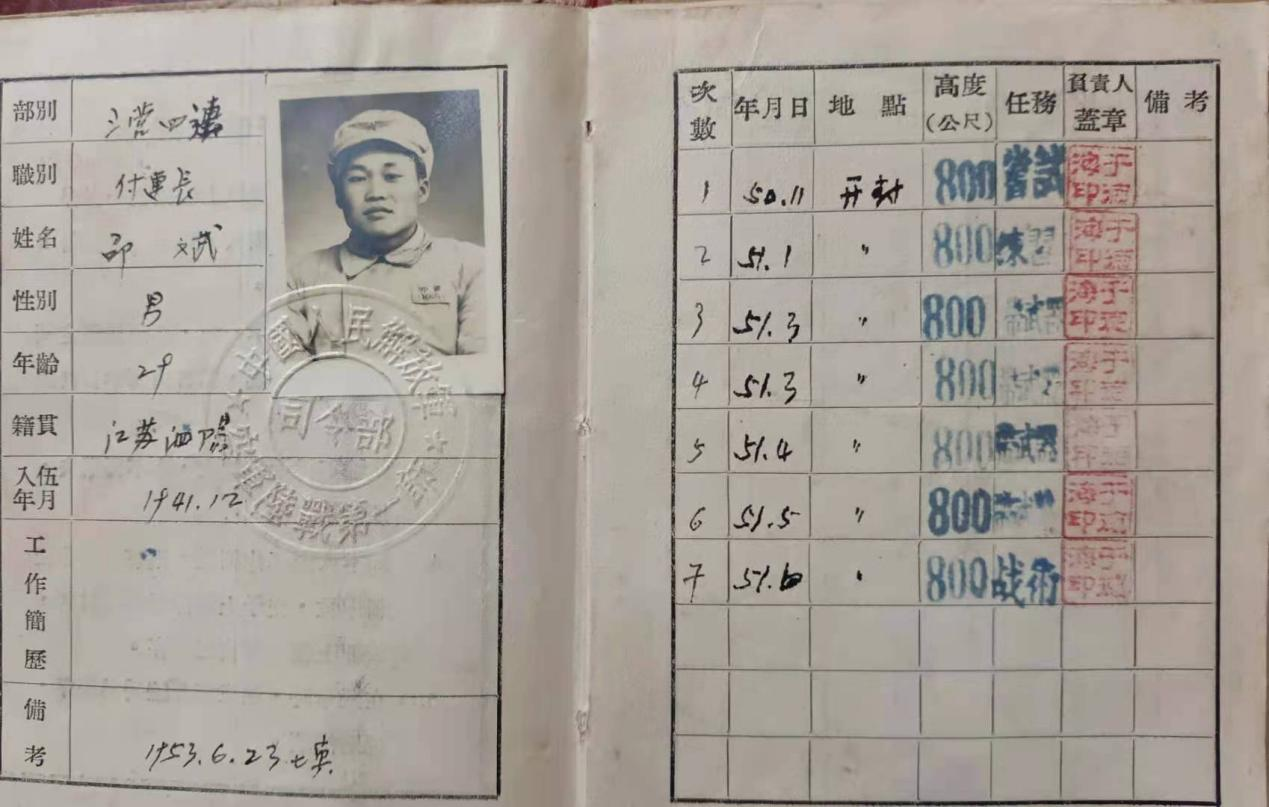 部別 三营四連
職別 付連長
姓名 邵 斌
性別 男
年齡 29
籍貫 江苏泗陽
入伍年月 1941.12
工作簡歷
備考 1953.6.23 填
中國人民解放軍
空軍陸戰第一旅
司令部
次數 年月日 地點 高度(公尺) 任務 負責人蓋章 備考
1 50.11 开封 800 嘗試
2 51.1 〃 800 練習
3 51.3 〃 800 帶武器
4 51.3 〃 800 帶武器
5 51.4 〃 800 帶武器
6 51.5 〃 800 帶武器
7 51.6 〃 800 战術